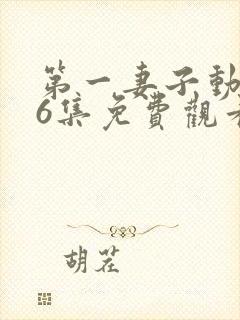 第一妻子動
6集免費觀看
胡茬